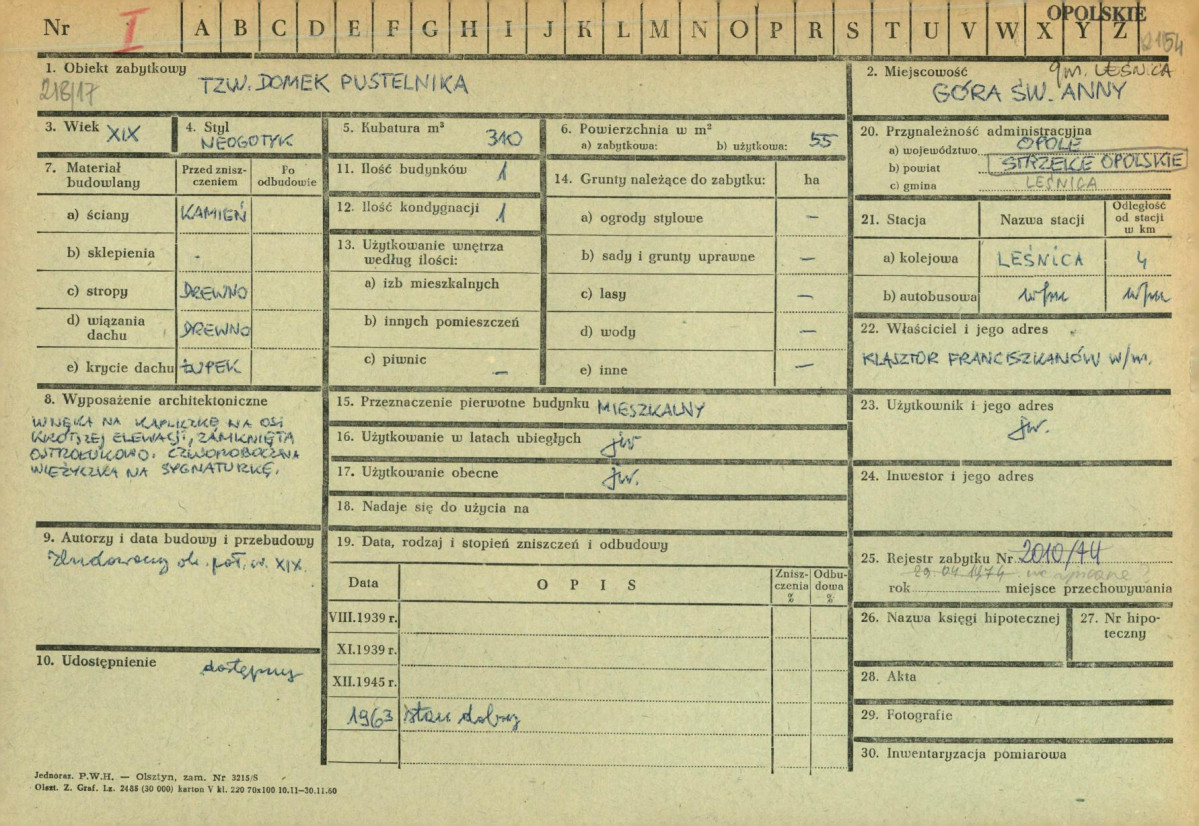 OPOLSKIE
Nr I A B C D E F G H I J K L M N O P R S T U V W X Y Z
2154
1. Obiekt zabytkowy TZW. DOMEK PUSTELNIKA
218/17
2. Miejscowość gm. LEŚNICA
GÓRA ŚW. ANNY
3. Wiek XIX
4. Styl
NEOGOTYK
5. Kubatura m³ 310
6. Powierzchnia w m²
a) zabytkowa: b) użytkowa: 55
7. Materiał budowlany
Przed zniszczeniem
Po odbudowie
a) ściany KAMIEŃ
b) sklepienia -
c) stropy DREWNO
d) wiązania dachu DREWNO
e) krycie dachu ŁUPEK
8. Wyposażenie architektoniczne
WNĘKA NA KAPLICZKĘ NA OSI
KRÓTSZEJ ELEWACJI, ZAMKNIĘTA
OSTROŁUKOWO. CZWOROBOCZNA
WIEŻYCZKA NA SYGNATURKĘ.
9. Autorzy i data budowy i przebudowy
Zbudowany ok. poł. w. XIX.
10. Udostępnienie dostępny
11. Ilość budynków 1
12. Ilość kondygnacji 1
13. Użytkowanie wnętrza
według ilości:
a) izb mieszkalnych
b) innych pomieszczeń
c) piwnic —
14. Grunty należące do zabytku: ha
a) ogrody stylowe —
b) sady i grunty uprawne —
c) lasy —
d) wody —
e) inne —
15. Przeznaczenie pierwotne budynku MIESZKALNY
16. Użytkowanie w latach ubiegłych jw
17. Użytkowanie obecne jw.
18. Nadaje się do użycia na
19. Data, rodzaj i stopień zniszczeń i odbudowy
Data OPIS Zniszczenia % Odbudowa %
VIII.1939 r.
XI.1939 r.
XII.1945 r.
1963 stan dobry
20. Przynależność administracyjna
a) województwo OPOLE
b) powiat STRZELCE OPOLSKIE
c) gmina LEŚNICA
21. Stacja Nazwa stacji Odległość od stacji w km
a) kolejowa LEŚNICA 4
b) autobusowa w/m w/m
22. Właściciel i jego adres
KLASZTOR FRANCISZKANÓW w/m.
23. Użytkownik i jego adres
jw.
24. Inwestor i jego adres
25. Rejestr zabytku Nr 2010/74
23.04.1974 nie wpisane?
rok miejsce przechowywania
26. Nazwa księgi hipotecznej
27. Nr hipoteczny
28. Akta
29. Fotografie
30. Inwentaryzacja pomiarowa
Jednoraz. P.W.H. — Olsztyn, zam. Nr 3215/S
Olszt. Z. Graf. Lz. 2488 (30 000) karton V kl. 220 70x100 10.11—30.11.60